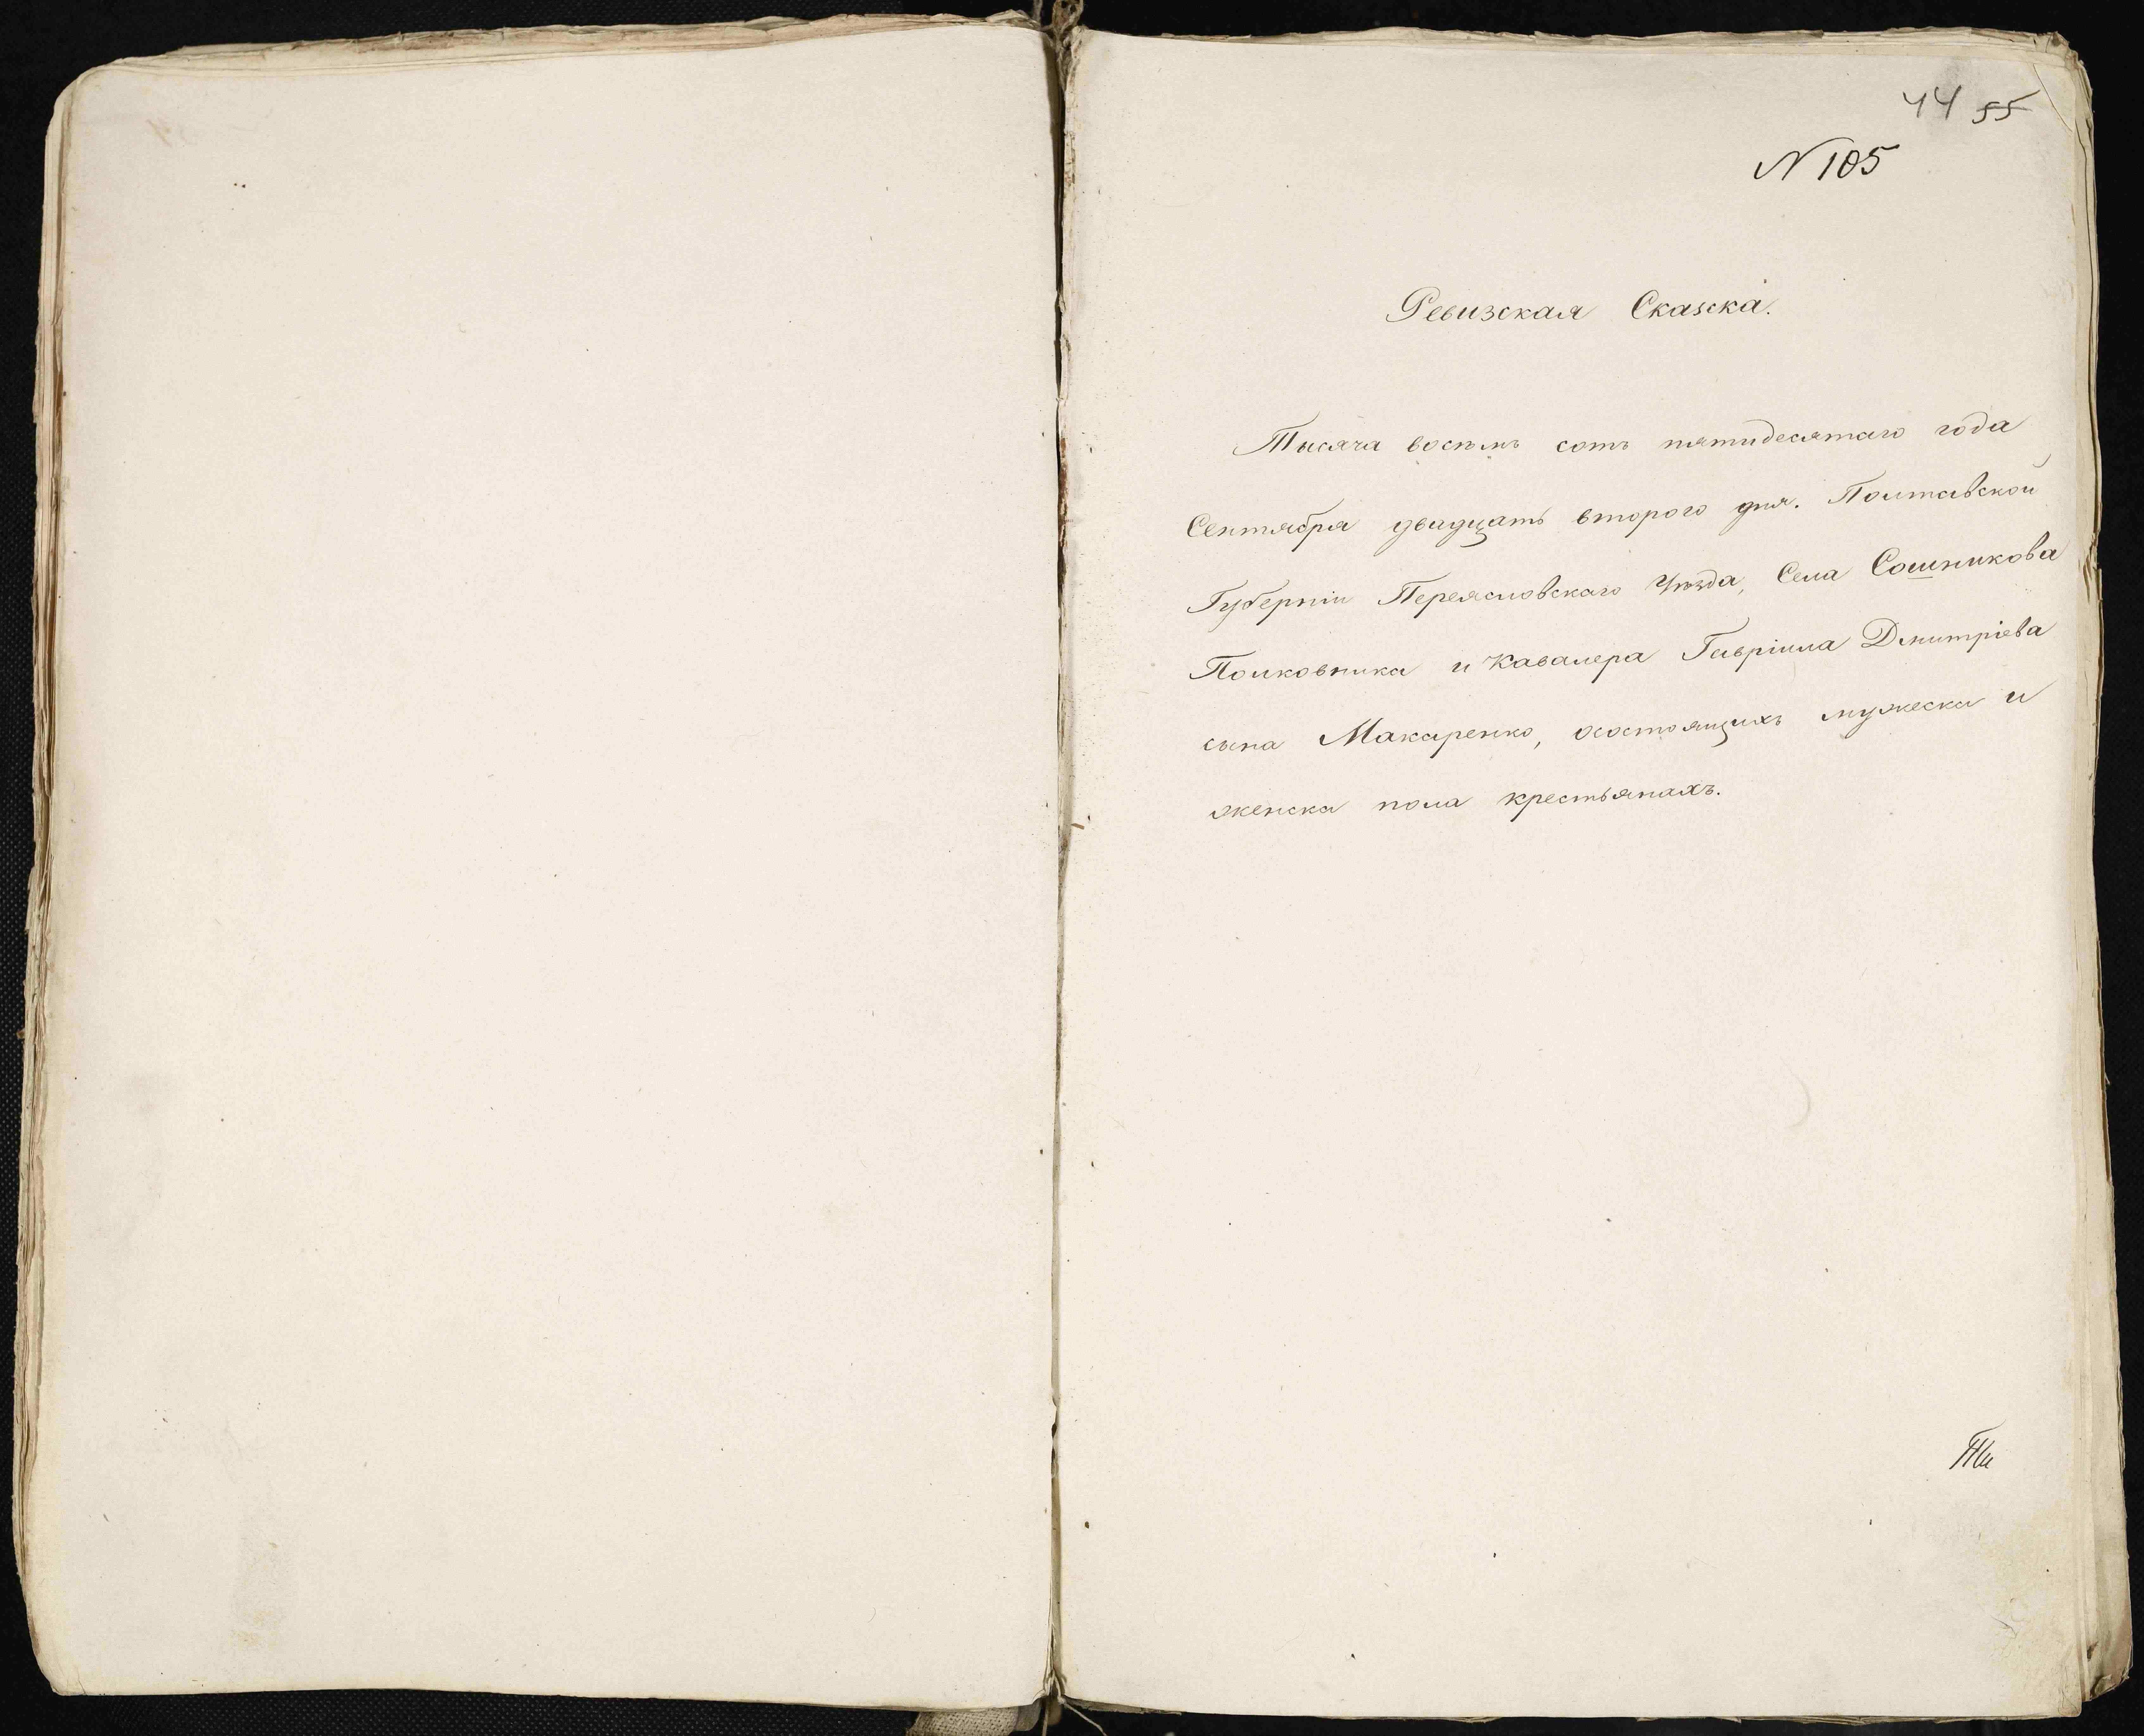 44 55
N 105
Ревизская Сказска.
Тысяча восемь сотъ пятидесятаго года
Сентября двадцать второго дня. Полтавской
Губерніи Переясловскаго Уѣзда, Села Сошникова
Полковника и Кавалера Гавріила Дмитріева
сына Макаренко, осостоящихъ мужеска и
женска пола крестьянахъ.